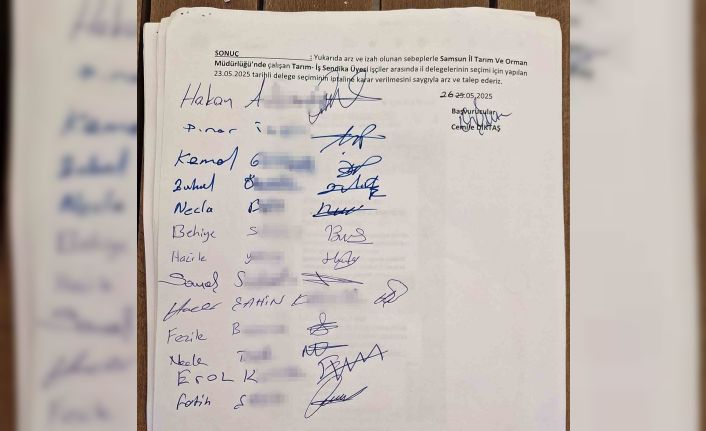 SONUÇ : Yukarıda arz ve izah olunan sebeplerle Samsun İl Tarım Ve Orman
Müdürlüğü'nde çalışan Tarım- İş Sendika Üyesi işçiler arasında il delegelerinin seçimi için yapılan
23.05.2025 tarihli delege seçiminin iptaline karar verilmesini saygıyla arz ve talep ederiz.
26 .05.2025
Başvurucular
Cemile DİKTAŞ
Hakan A
Pınar
Kemal G
Zuhal Ö
Necla
Behiye S
Hacile Y
S
Hacer ŞAHİN K
Fezile B
Necla T
EROL K
Fatih S